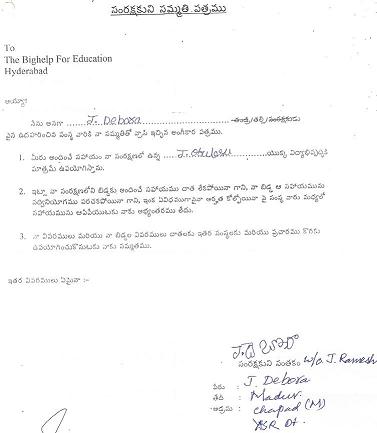 సంరక్షకుని సమ్మతి పత్రము
To
The Bighelp For Education
Hyderabad
అయ్యా!
నేను అనగా J. Debora తండ్రి/తల్లి/సంరక్షకుడు
పైన ఉదహరించిన సంస్థ వారికి నా సమ్మతితో వ్రాసి ఇచ్చిన అంగీకార పత్రము.
1. మీరు అందించే సహాయం నా సంరక్షణలో ఉన్న J. యొక్క విద్యాభివృద్ధికి
మాత్రమే ఉపయోగిస్తాను.
2. ఇట్లు నా సంరక్షణలోని బిడ్డకు అందించే సహాయము దాత లేకపోయినా గాని, నా బిడ్డ ఆ సహాయమును
సద్వినియోగము పరచకపోయినా గాని, ఇంక ఏవిధముగానైనా అర్హత కోల్పోయినా పై సంస్థ వారు మధ్యలో
సహాయమును ఆపివేయుటకు నాకు అభ్యంతరము లేదు.
3. నా వివరములు మరియు నా బిడ్డల వివరములు దాతలకు ఇతర సంస్థలకు మరియు ప్రచారము కొరకు
ఉపయోగించుకొనుటకు నాకు సమ్మతము.
ఇతర వివరములు ఏమైనా :-
సంరక్షకుని సంతకం w/o J. Ramesh
పేరు : J. Debora
తేదీ : Madur
అడ్రసు : chapad (M)
YSR Dt.